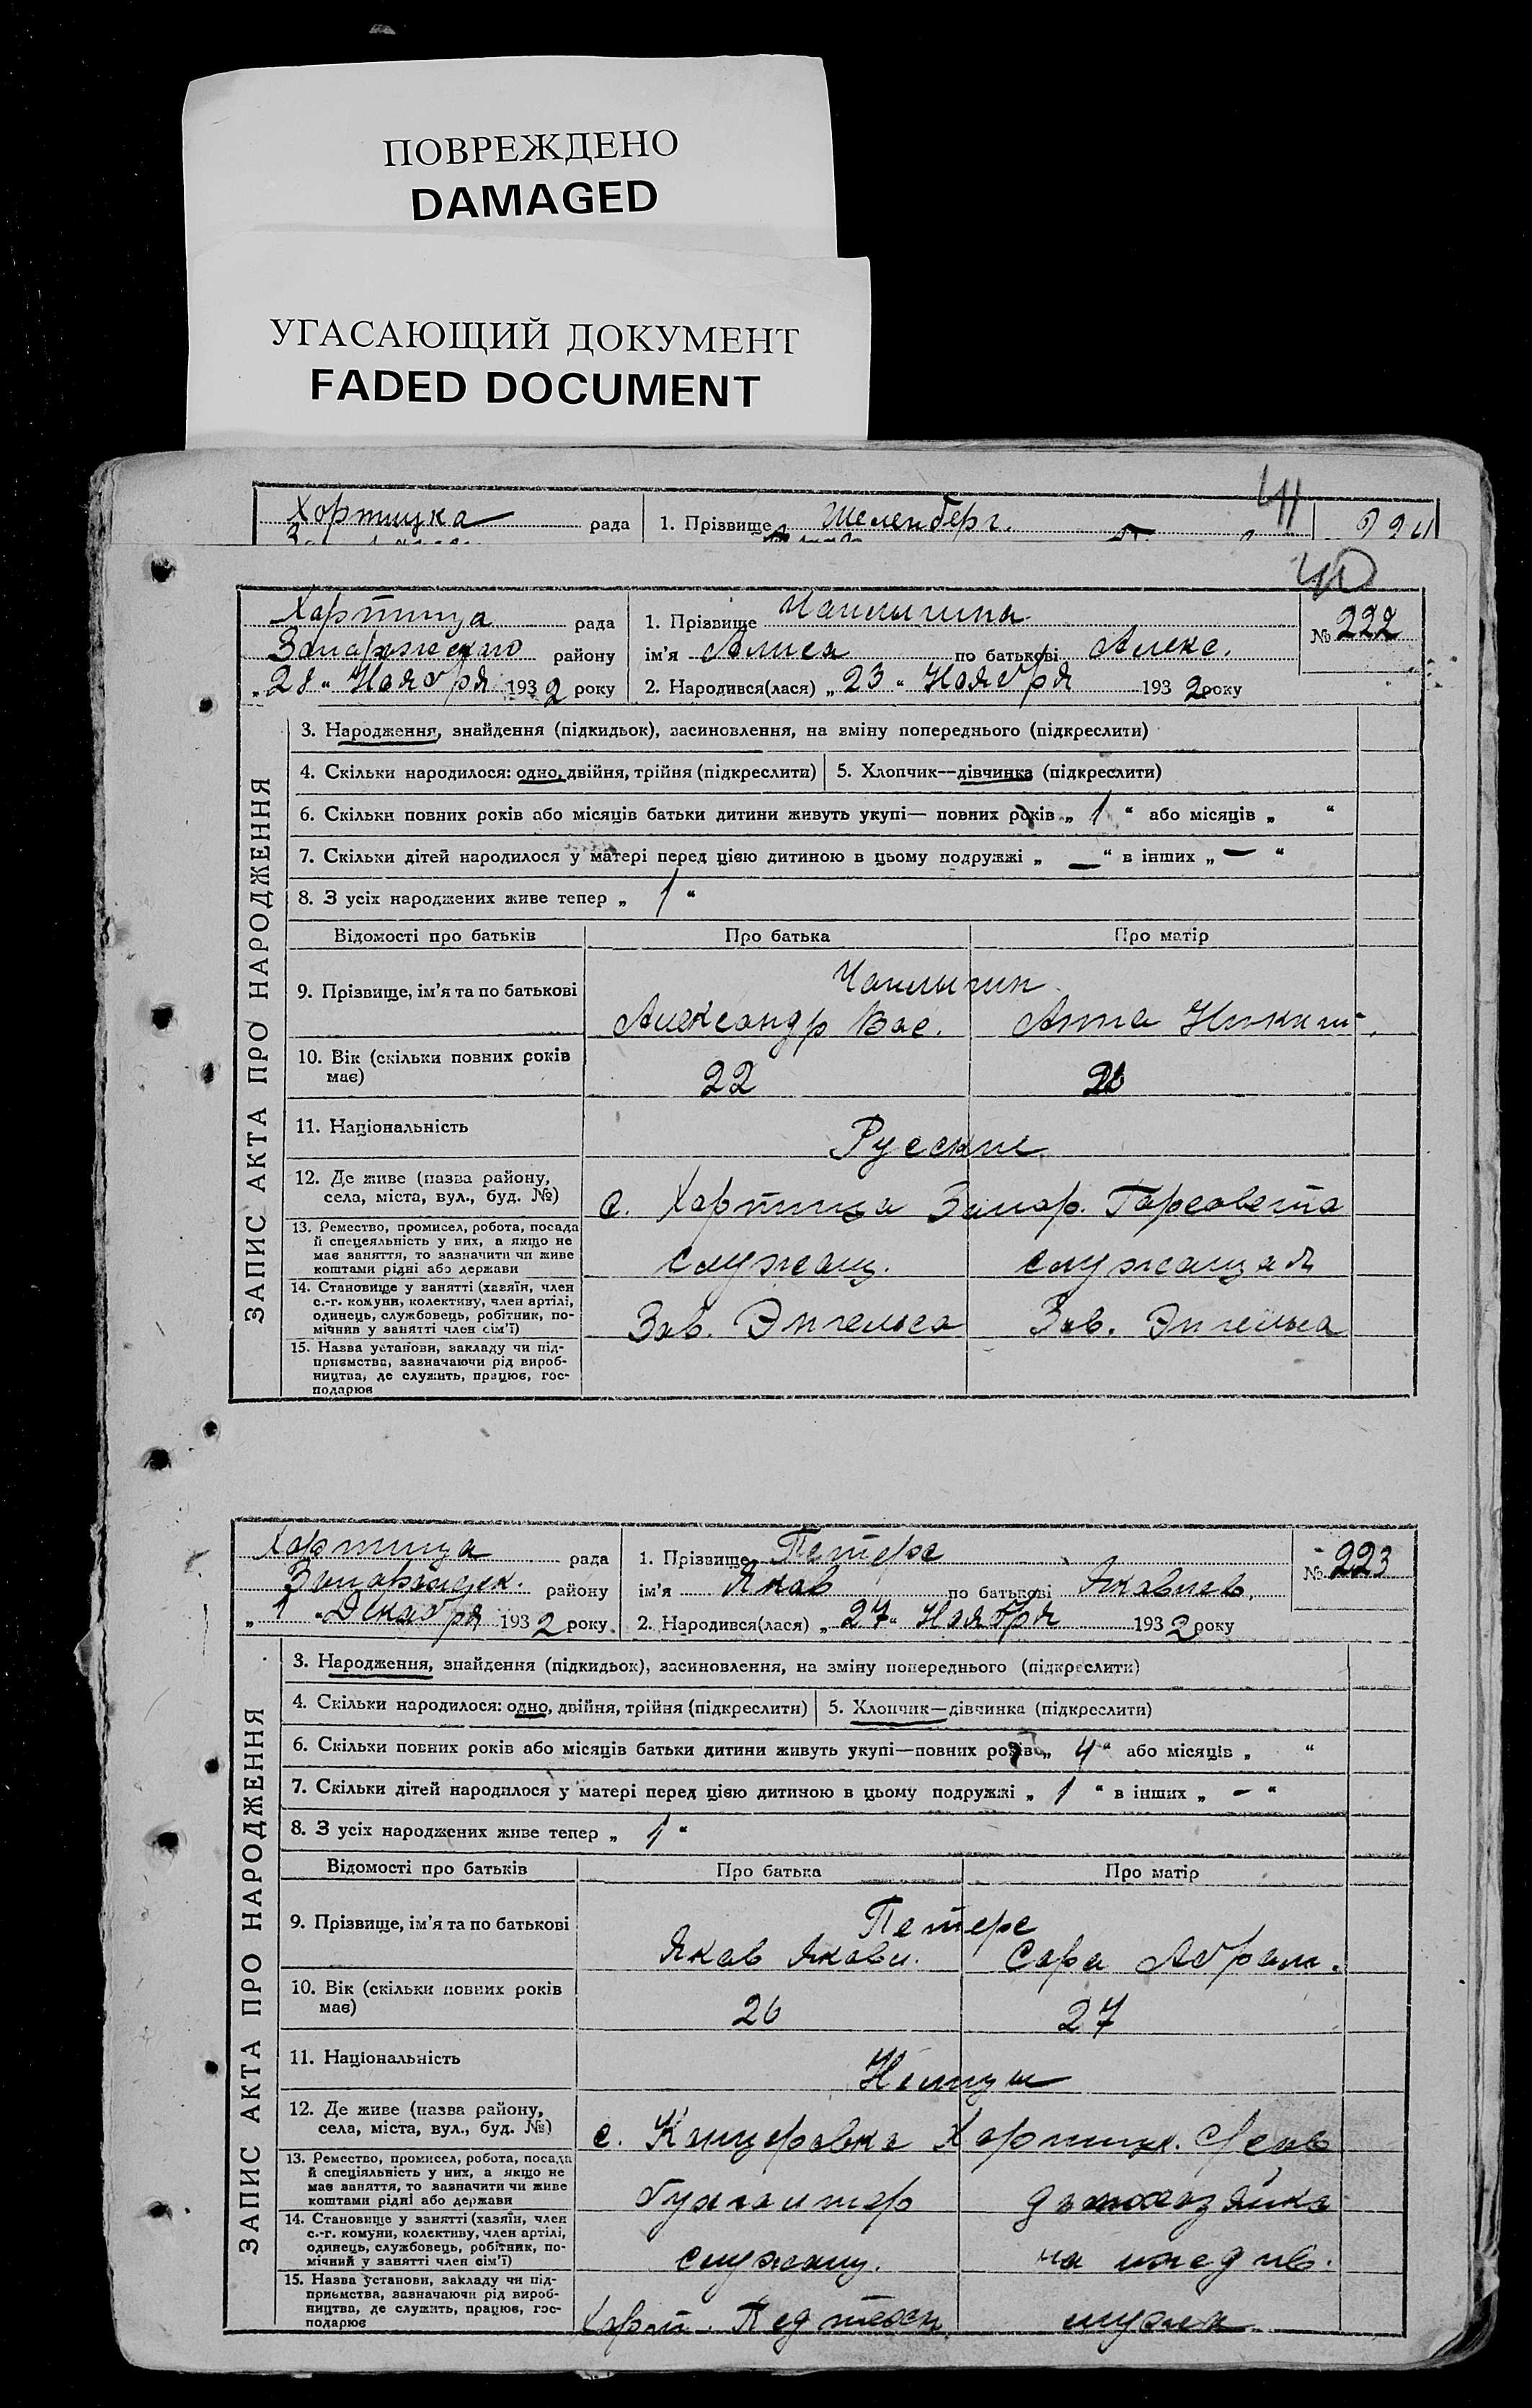 ПОВРЕЖДЕНО
DAMAGED
УГАСАЮЩИЙ ДОКУМЕНТ
FADED DOCUMENT
41
Хортицка рада 1. Прізвище Шеленберг. 224
40
Хортица рада 1. Прізвище Чаплыгина № 222
Запорожского району ім'я Алиса по батькові Алекс.
„28“ Ноября 1932 року 2. Народився(лася) „23“ Ноября 1932 року
ЗАПИС АКТА ПРО НАРОДЖЕННЯ
3. Народження, знайдення (підкидьок), засиновлення, на зміну попереднього (підкреслити)
4. Скільки народилося: одно, двійня, трійня (підкреслити) 5. Хлопчик—дівчинка (підкреслити)
6. Скільки повних років або місяців батьки дитини живуть укупі— повних років „ 1 “ або місяців „ “
7. Скільки дітей народилося у матері перед цією дитиною в цьому подружжі „ — “ в інших „ — “
8. З усіх народжених живе тепер „ 1 “
Відомості про батьків Про батька Про матір
9. Прізвище, ім'я та по батькові Чаплыгин
Александр Вас. Анна Никит.
10. Вік (скільки повних років
має) 22 20
11. Національність Русские
12. Де живе (назва району,
села, міста, вул., буд. №) с. Хортица Запор. Горсовета
13. Ремество, промисел, робота, посада
й спецеяльність у них, а якщо не
має заняття, то зазначити чи живе
коштами рідні або держави служащ. служащая
14. Становище у занятті (хазяїн, член
с.-г. комуни, колективу, член артілі,
одинець, службовець, робітник, по-
мічнив у занятті член сім'ї) Зав. Энгельса Зав. Энгельса
15. Назва установи, закладу чи під-
приємства, зазначаючи рід вироб-
ництва, де служить, працює, гос-
подарює
Хортица рада 1. Прізвище Петерс № 223
району ім'я Яков по батькові Яковлев.
„1“ Декабря 1932 року 2. Народився(лася) „27“ Ноября 1932 року
ЗАПИС АКТА ПРО НАРОДЖЕННЯ
3. Народження, знайдення (підкидьок), засиновлення, на зміну попереднього (підкреслити)
4. Скільки народилося: одно, двійня, трійня (підкреслити) 5. Хлопчик—дівчинка (підкреслити)
6. Скільки повних років або місяців батьки дитини живуть укупі—повних років „ 4 “ або місяців „ “
7. Скільки дітей народилося у матері перед цією дитиною в цьому подружжі „ 1 “ в інших „ — “
8. З усіх народжених живе тепер „ 1 “
Відомості про батьків Про батька Про матір
9. Прізвище, ім'я та по батькові Петерс
Яков Яковл. Сара Абрам.
10. Вік (скільки повних років
має) 26 27
11. Національність Немцы
12. Де живе (назва району,
села, міста, вул., буд. №) с. Канцеровка Хортицк.
13. Ремество, промисел, робота, посада
й спеціяльність у них, а якщо не
має заняття, то зазначити чи живе
коштами рідні або держави бухгалтер домохозяйка
14. Становище у занятті (хазяїн, член
с.-г. комуни, колективу, член артілі,
одинець, службовець, робітник, по-
мічний у занятті член сім'ї) служащ. на иждив.
15. Назва установи, закладу чи під-
приємства, зазначаючи рід вироб-
ництва, де служить, працює, гос-
подарює Хорт. Педтехн. мужа